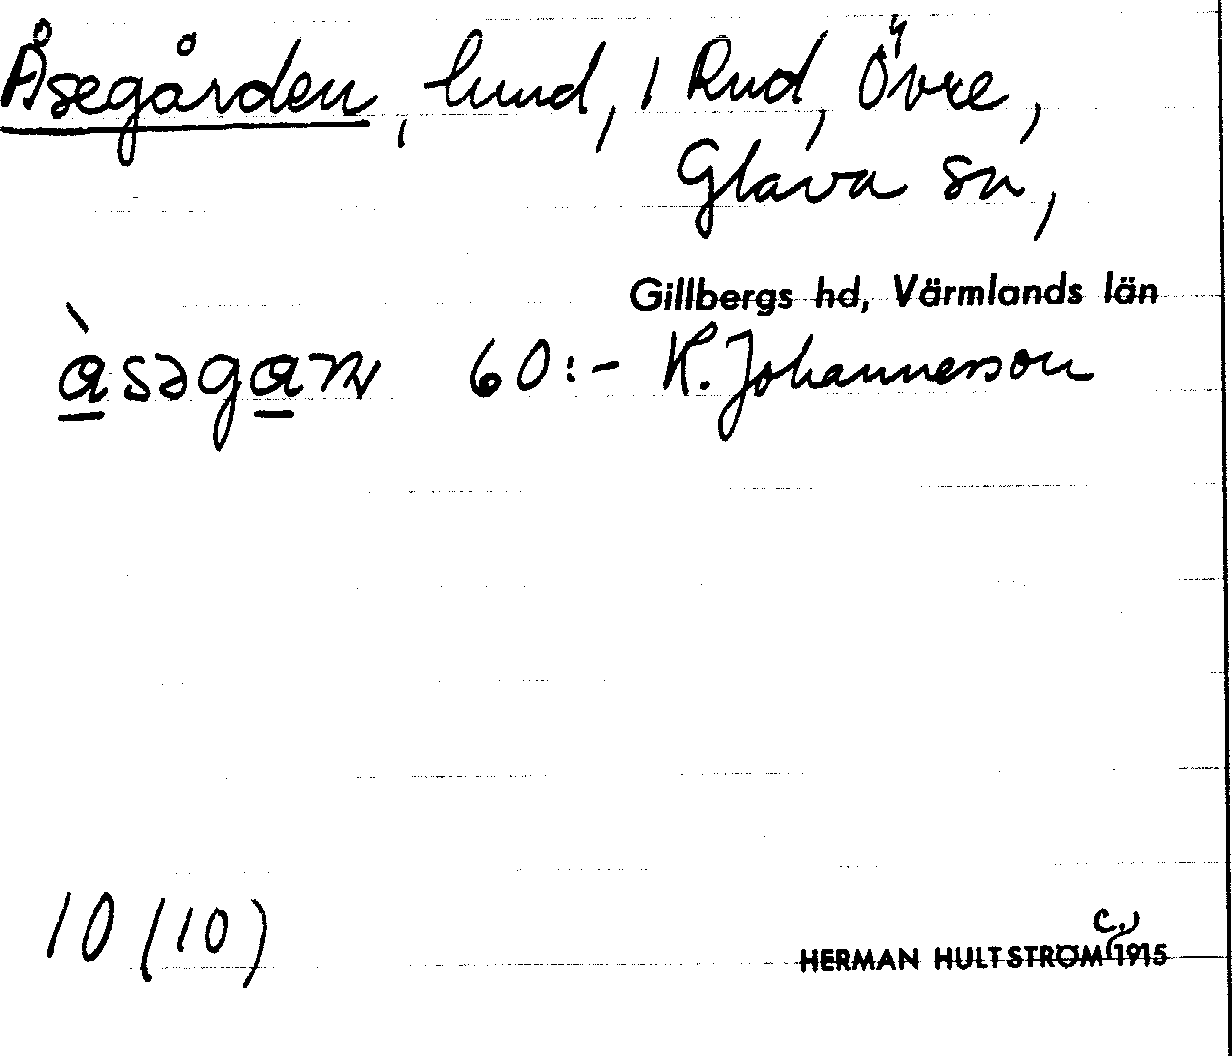 Åsegården, lund, 1 Rud, Övre,
Glava sn,
Gillbergs hd, Värmlands län
àsəgaɳ 60:- K. Johannesson
10 (10)
HERMAN HULTSTRÖM c. 1915